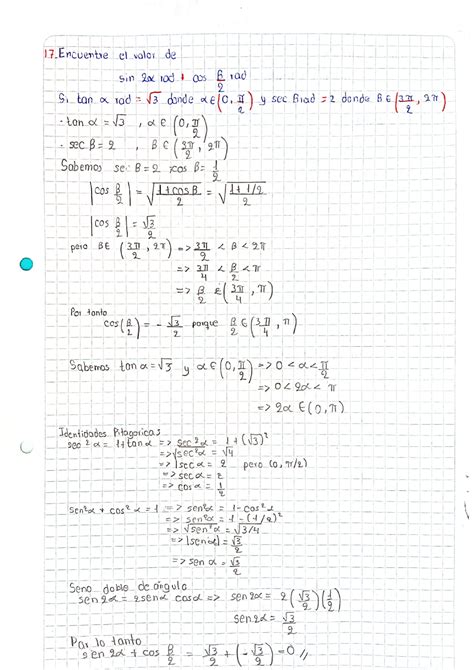 17. Encuentre el valor de
sin 2α rad + cos β/2 rad
Si tan α rad = √3 donde α ∈ (0, π/2) y sec β rad = 2 donde β ∈ (3π/2, 2π)
· tan α = √3 , α ∈ (0, π/2)
· sec β = 2 , β ∈ (3π/2, 2π)
Sabemos sec β = 2 ; cos β = 1/2
|cos β/2| = √((1 + cos β)/2) = √((1 + 1/2)/2)
|cos β/2| = √3/2
pero β ∈ (3π/2, 2π) => 3π/2 < β < 2π
=> 3π/4 < β/2 < π
=> β/2 ∈ (3π/4, π)
Por tanto
cos(β/2) = - √3/2 porque β/2 ∈ (3π/4, π)
Sabemos tan α = √3 y α ∈ (0, π/2) => 0 < α < π/2
=> 0 < 2α < π
=> 2α ∈ (0, π)
Identidades Pitagoricas
sec²α = 1 + tan α => sec²α = 1 + (√3)²
=> √sec²α = √4
=> |sec α = 2 pero (0, π/2)
=> sec α = 2
=> cos α = 1/2
sen²α + cos²α = 1 => sen²α = 1 - cos²α
=> sen²α = 1 - (1/2)²
=> √sen²α = √3/4
=> |sen α| = √3/2
=> sen α = √3/2
Seno doble de angulo
sen 2α = 2 sen α cos α => sen 2α = 2 (√3/2)(1/2)
sen 2α = √3/2
Por lo tanto
sen 2α + cos β/2 = √3/2 + (- √3/2) = 0 //